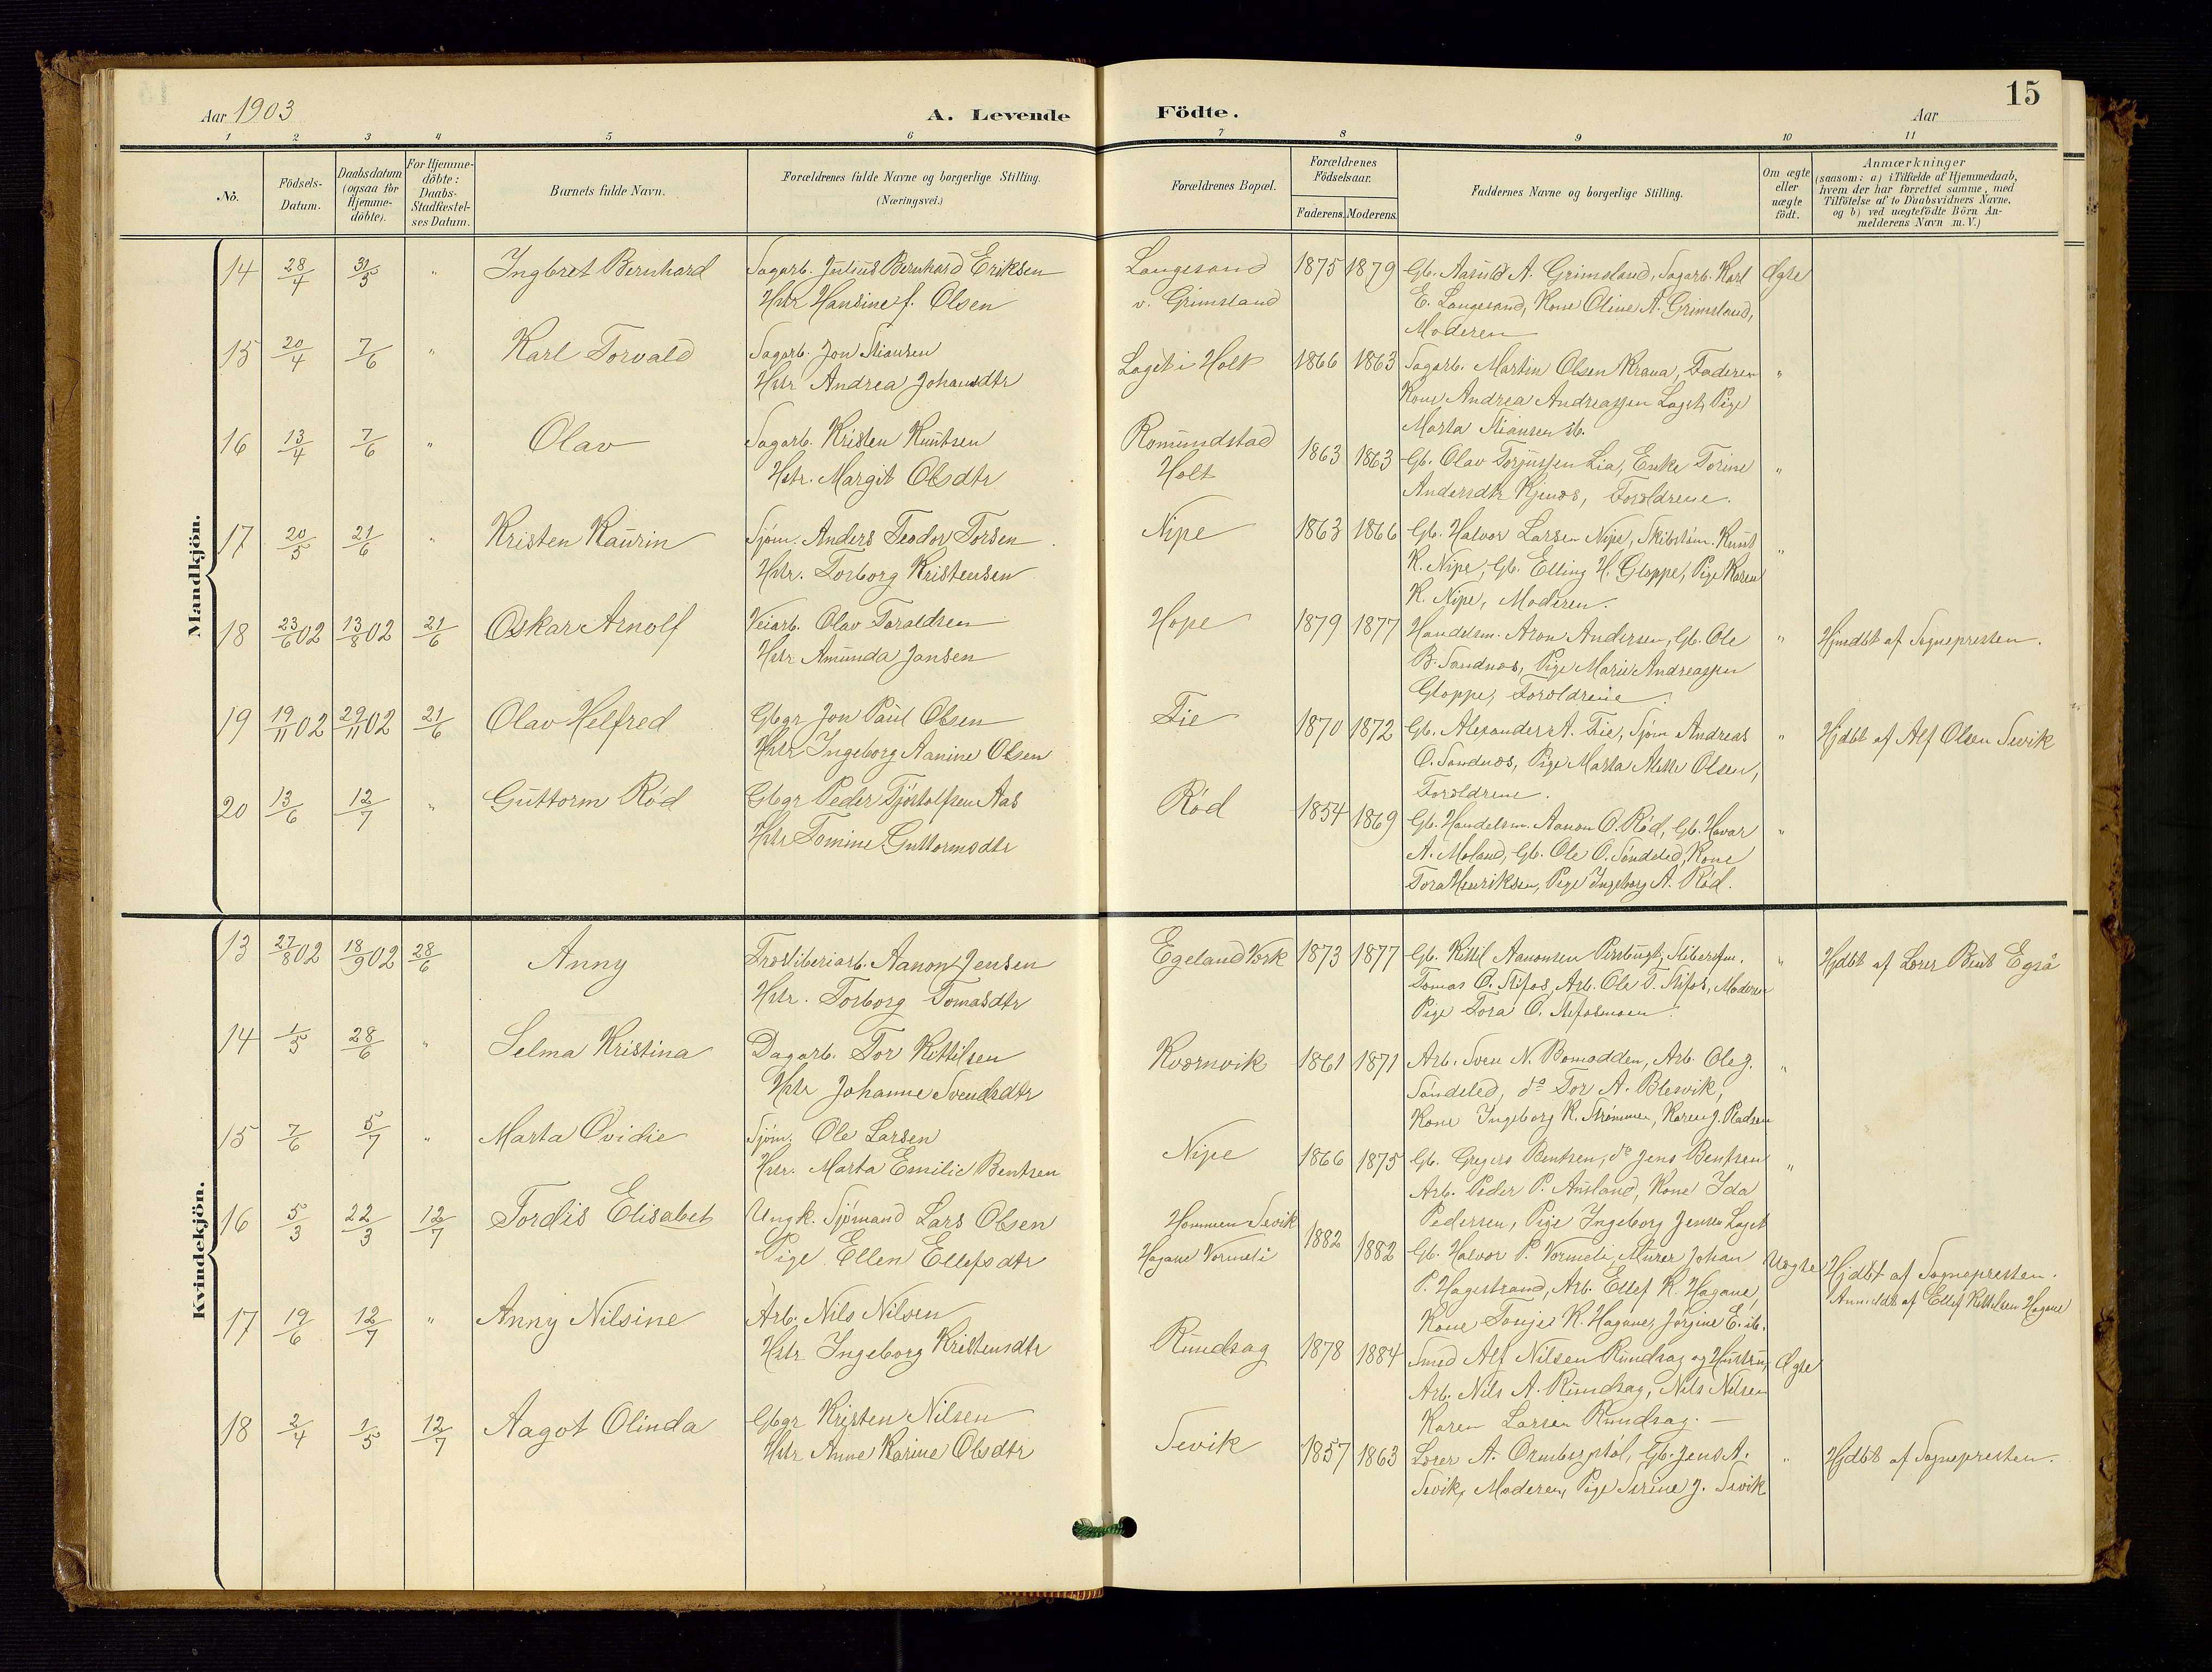 15
Aar 1903
A. Levende Födte.
Aar
1 2 3 4 5 6 7 8 9 10 11
No.
Födsels-Datum.
Daabsdatum (ogsaa for Hjemme-döbte).
For Hjemme-döbte: Daabs-Stadfæstel-ses Datum.
Barnets fulde Navn.
Forældrenes fulde Navne og borgerlige Stilling.
(Næringsvei.)
Forældrenes Bopæl.
Forældrenes Födselsaar.
Faderens. Moderens.
Faddernes Navne og borgerlige Stilling.
Om ægte eller uægte födt.
Anmærkninger
(saasom: a) i Tilfælde af Hjemmedaab,
hvem der har forrettet samme, med
Tilföielse af to Daabsvidners Navne,
og b) ved uægtefödte Börn An-
melderens Navn m. V.)
Mandkjön.
14 28/4 31/5 " Ingbret Bernhard Sagarb. Julius Bernhard Eriksen Langesand 1875 1879 Gb. Aasuld A. Grimsland, Sagarb. Karl Ægte
Hstr Hansine f. Olsen v. Grimsland E. Langesand, Kone Oline A. Grimsland,
Moderen
15 20/4 7/6 " Karl Torvald Sagarb. Jon Stiansen Laget i Holt 1866 1863 Sagarb. Martin Olsen Krana, Faderen "
Hstr Andrea Johansdtr Kone Andrea Andreassen Laget, Pige
Marta Stiansen ib.
16 13/4 7/6 " Olav Sagarb. Kristen Knutsen Romundstad 1863 1863 Gb. Olav Torjussen Lia, Enke Torine "
Hstr. Margit Olsdtr Holt Andersdtr Kjenæs, Forældrene.
17 20/5 21/6 " Kristen Kaurin Sjøm. Anders Teodor Torsen Nipe 1863 1866 Gb. Halvor Larsen Nipe, Skibstøm. Knut "
Hstr. Torborg Kristensen K. Nipe, Gb. Elling H. Gloppe, Pige Karen
K. Nipe, Moderen.
18 23/6 02 13/8 02 21/6 Oskar Arnolf Veiarb. Olav Toraldsen Hope 1879 1877 Handelsm. Aron Andersen, Gb. Ole " Hjmdbt af Sognepresten.
Hstr Amunda Jansen B. Sandnæs, Pige Marie Andreassen
Gloppe, Forældrene
19 19/11 02 29/11 02 21/6 Olav Helfred Gbgr Jon Paul Olsen Fie 1870 1872 Gb. Alexander A. Fie, Sjøm Andreas " Hjdbt af Alf Olsen Sevik
Hstr Ingeborg Aanine Olsen O. Sandnæs, Pige Marta Olsen,
Forældrene.
20 13/6 12/7 " Guttorm Rød Gbgr Peder Tjøstolfsen Aas Rød 1854 1869 Gb. Handelsm. Aanon O. Rød, Gb. Havar "
Hstr Tomine Guttormsdtr A. Moland, Gb. Ole O. Søndeled, Kone
Tora Henriksen, Pige Ingeborg A. Rød.
Kvindekjön.
13 27/8 02 18/9 02 28/6 Anny Aanon Jensen Egeland Verk 1873 1877 Gb. Kittil Aanonsen " Hjdbt af Lærer Bent Egrå
Hstr. Torborg Tomasdtr Tomas O. Stifos, Arb. Ole T. Stifos, Moderen
Pige Tora O. Stifosmoen.
14 1/5 28/6 " Selma Kristina Dagarb. Tor Kittilsen Kværnvik 1861 1871 Arb. Sven N. Bomodden, Arb. Ole J. "
Hstr Johanne Svendsdtr Søndeled, do Tor A. Blesvik,
Kone Ingeborg K. Strømmen, Karen J. Pladsen
15 7/6 5/7 " Marta Ovidie Sjøm. Ole Larsen Nipe 1866 1875 Gb. Gregers Bentsen, do Jens Bentsen "
Hstr. Marta Emilie Bentsen Arb. Peder P. Ausland, Kone Ida
Pedersen, Pige Ingeborg Jensen Laget
16 5/3 22/3 12/7 Tordis Elisabet Ungk. Sjømand Lars Olsen Hommen Sevik 1882 1882 Gb. Halvor P. Vormeli, Murer Johan Uægte Hjdbt af Sognepresten.
Pige Ellen Ellefsdtr Hagane Vormeli P. Hagestrand, Arb. Ellef K. Hagane, Anmeldt af Ellef Kittelsen Hagane
Kone Tonje K. Hagane, Jørgine E. ib.
17 19/6 12/7 " Anny Nilsine Arb. Nils Nilsen Rundsag 1878 1884 Smed Alf Nilsen Rundsag og Hustru, Ægte
Hstr Ingeborg Kristensdtr Arb. Nils A. Rundsag, Nils Nilsen
Karen Larsen Rundsag. —
18 2/4 1/5 12/7 Aagot Olinda Gbgr Kristen Nilsen Sevik 1857 1863 Lærer A. Ormbergstøl, Gb. Jens A. " Hjdbt af Sognepresten.
Hstr Anne Karine Olsdtr Sevik, Moderen, Pige Serine J. Sevik